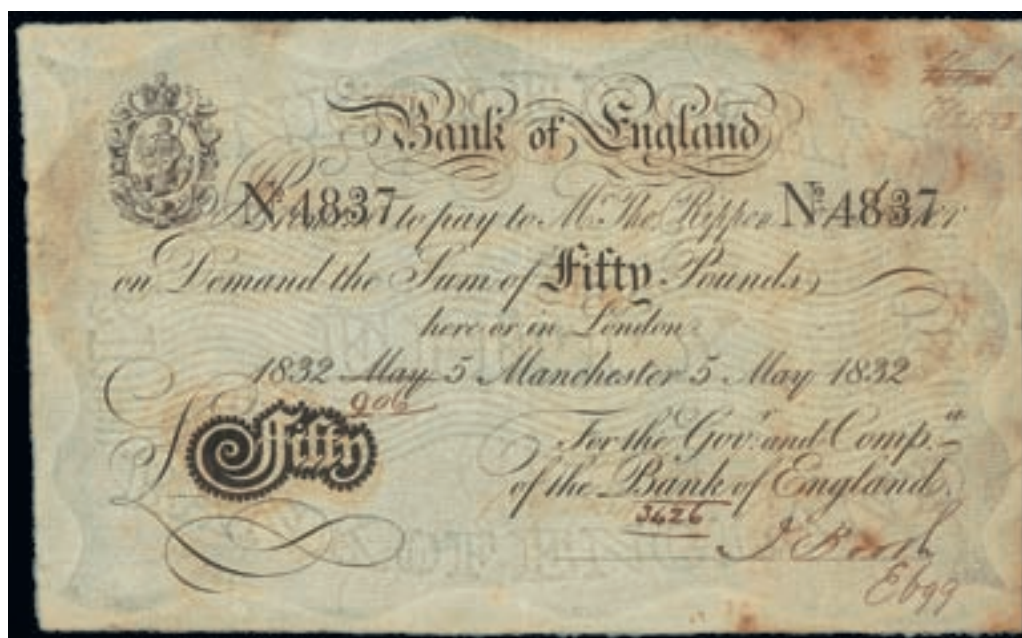 Bank of England
Nº 4837 to pay to Mr. Tho. Rippon Nº 4837
on Demand the Sum of Fifty Pounds
here or in London
1832 May 5 Manchester 5 May 1832
906
Fifty
For the Govr. and Compa.
of the Bank of England.
3426
J Booth
E699